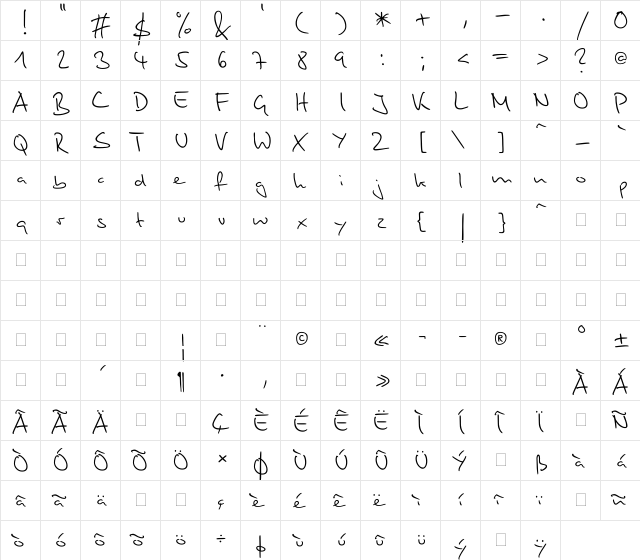 ! " # $ % & ' ( ) * + , – · / 0
1 2 3 4 5 6 7 8 9 : ; < = > ? @
A B C D E F G H I J K L M N O P
Q R S T U V W X Y Z [ \ ] ^ _ `
a b c d e f g h i j k l m n o p
q r s t u v w x y z { | } ^
¦ ¨ © « ¬ - ® ° ±
´ ¶ · , » À Á
Â Ã Ä Ç È É Ê Ë Ì Í Î Ï Ñ
Ò Ó Ô Õ Ö × Ø Ù Ú Û Ü Ý ß à á
â ã ä ç è é ê ë ì í î ï ñ
ò ó ô õ ö ÷ ø ù ú û ü ý ÿ